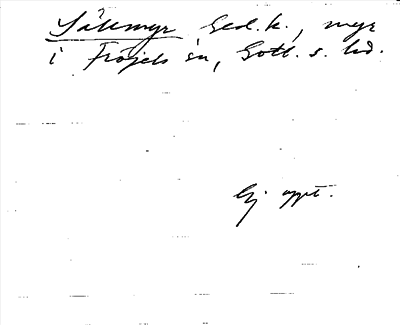 Sällmyr, Ged.k., myr
i Fröjels sn, Gotl. s. hd.
Ej uppt.